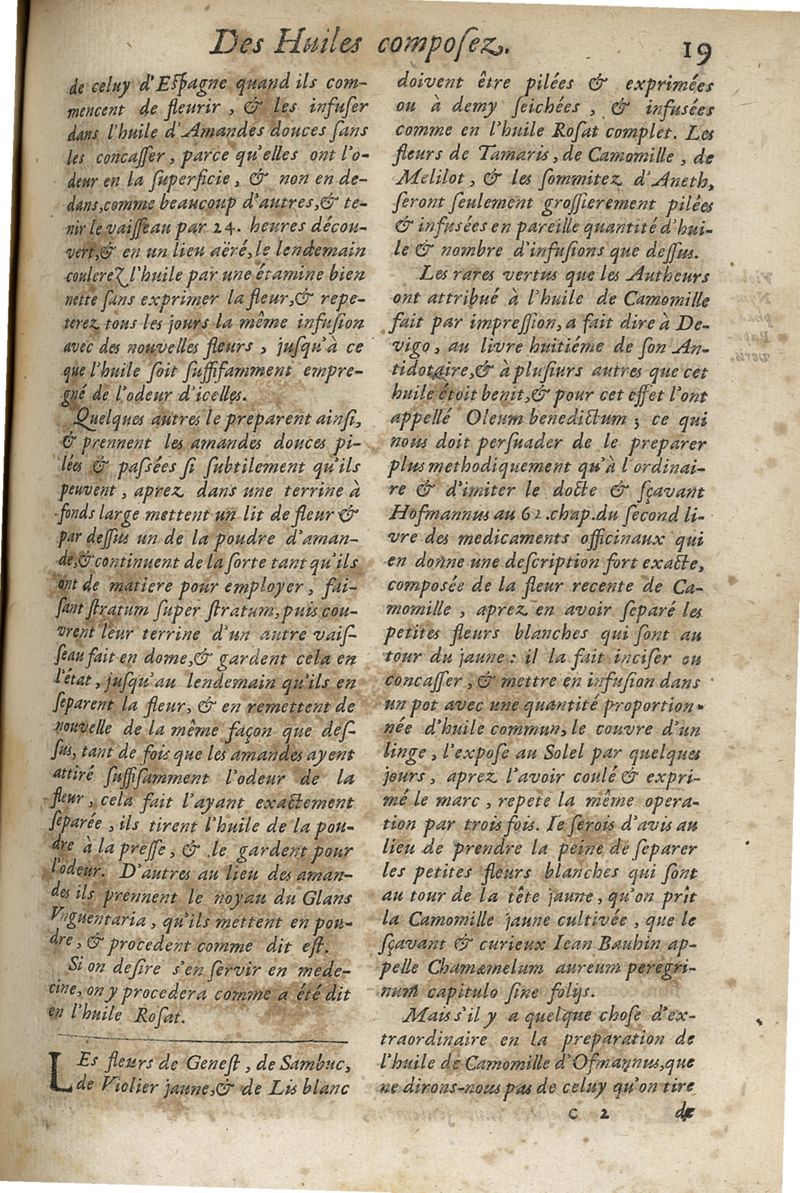 Des Huiles compoſez.
19
de celuy d'Eſpagne quand ils com-
mencent de fleurir, & les infuſer
dans l'huile d'Amandes douces ſans
les concaſſer, parce qu'elles ont l'o-
deur en la ſuperficie, & non en de-
dans, comme beaucoup d'autres, & te-
nir le vaiſſeau par 24. heures décou-
vert, & en un lieu aëré, le lendemain
coulerez l'huile par une étamine bien
nette ſans exprimer la fleur, & repe-
terez tous les jours la même infuſion
avec des nouvelles fleurs, juſqu'à ce
que l'huile ſoit ſuffiſamment empre-
gné de l'odeur d'icelles.
Quelques autres le preparent ainſi,
& prennent les amandes douces pi-
lées & paſſées ſi ſubtilement qu'ils
peuvent, aprez dans une terrine à
fonds large mettent un lit de fleur &
par deſſus un de la poudre d'aman-
de, & continuent de la ſorte tant qu'ils
ont de matiere pour employer, fai-
ſant ſtratum ſuper ſtratum, puis cou-
vrent leur terrine d'un autre vaiſ-
ſeau fait en dome, & gardent cela en
l'état, juſqu'au lendemain qu'ils en
ſeparent la fleur, & en remettent de
nouvelle de la même façon que deſ-
ſus, tant de fois que les amandes ayent
attiré ſuffiſamment l'odeur de la
fleur, cela fait l'ayant exactement
ſeparée, ils tirent l'huile de la pou-
dre à la preſſe, & le gardent pour
l'odeur. D'autres au lieu des aman-
des ils prennent le noyau du Glans
Vnguentaria, qu'ils mettent en pou-
dre, & procedent comme dit eſt.
Si on deſire s'en ſervir en mede-
cine, on y procedera comme a été dit
en l'huile Roſat.
LEs fleurs de Geneſt, de Sambuc,
de Violier jaune, & de Lis blanc
doivent être pilées & exprimées
ou à demy ſeichées, & infusées
comme en l'huile Roſat complet. Les
fleurs de Tamaris, de Camomille, de
Melilot, & les ſommitez d'Aneth,
ſeront ſeulement groſſierement pilées
& infusées en pareille quantité d'hui-
le & nombre d'infuſions que deſſus.
Les rares vertus que les Autheurs
ont attribué à l'huile de Camomille
fait par impreſſion, a fait dire à De-
vigo, au livre huitiéme de ſon An-
tidotaire, & à pluſiurs autres que cet
huile étoit benit, & pour cet effet l'ont
appellé Oleum benedictum; ce qui
nous doit perſuader de le preparer
plus methodiquement qu'à l'ordinai-
re & d'imiter le docte & ſçavant
Hofmannus au 62. chap. du ſecond li-
vre des medicaments officinaux qui
en donne une deſcription fort exacte,
compoſée de la fleur recente de Ca-
momille, aprez en avoir ſeparé les
petites fleurs blanches qui ſont au
tour du jaune: il la fait inciſer ou
concaſſer, & mettre en infuſion dans
un pot avec une quantité proportion-
née d'huile commun, le couvre d'un
linge, l'expoſe au Solel par quelques
jours, aprez l'avoir coulé & expri-
mé le marc, repete la même opera-
tion par trois fois. Ie ſerois d'avis au
lieu de prendre la peine de ſeparer
les petites fleurs blanches qui ſont
au tour de la tête jaune, qu'on prît
la Camomille jaune cultivée, que le
ſçavant & curieux Iean Bauhin ap-
pelle Chamæmelum aureum peregri-
num capitulo ſine folijs.
Mais s'il y a quelque choſe d'ex-
traordinaire en la preparation de
l'huile de Camomille d'Ofmannus, que
ne dirons-nous pas de celuy qu'on tire
C 2
de